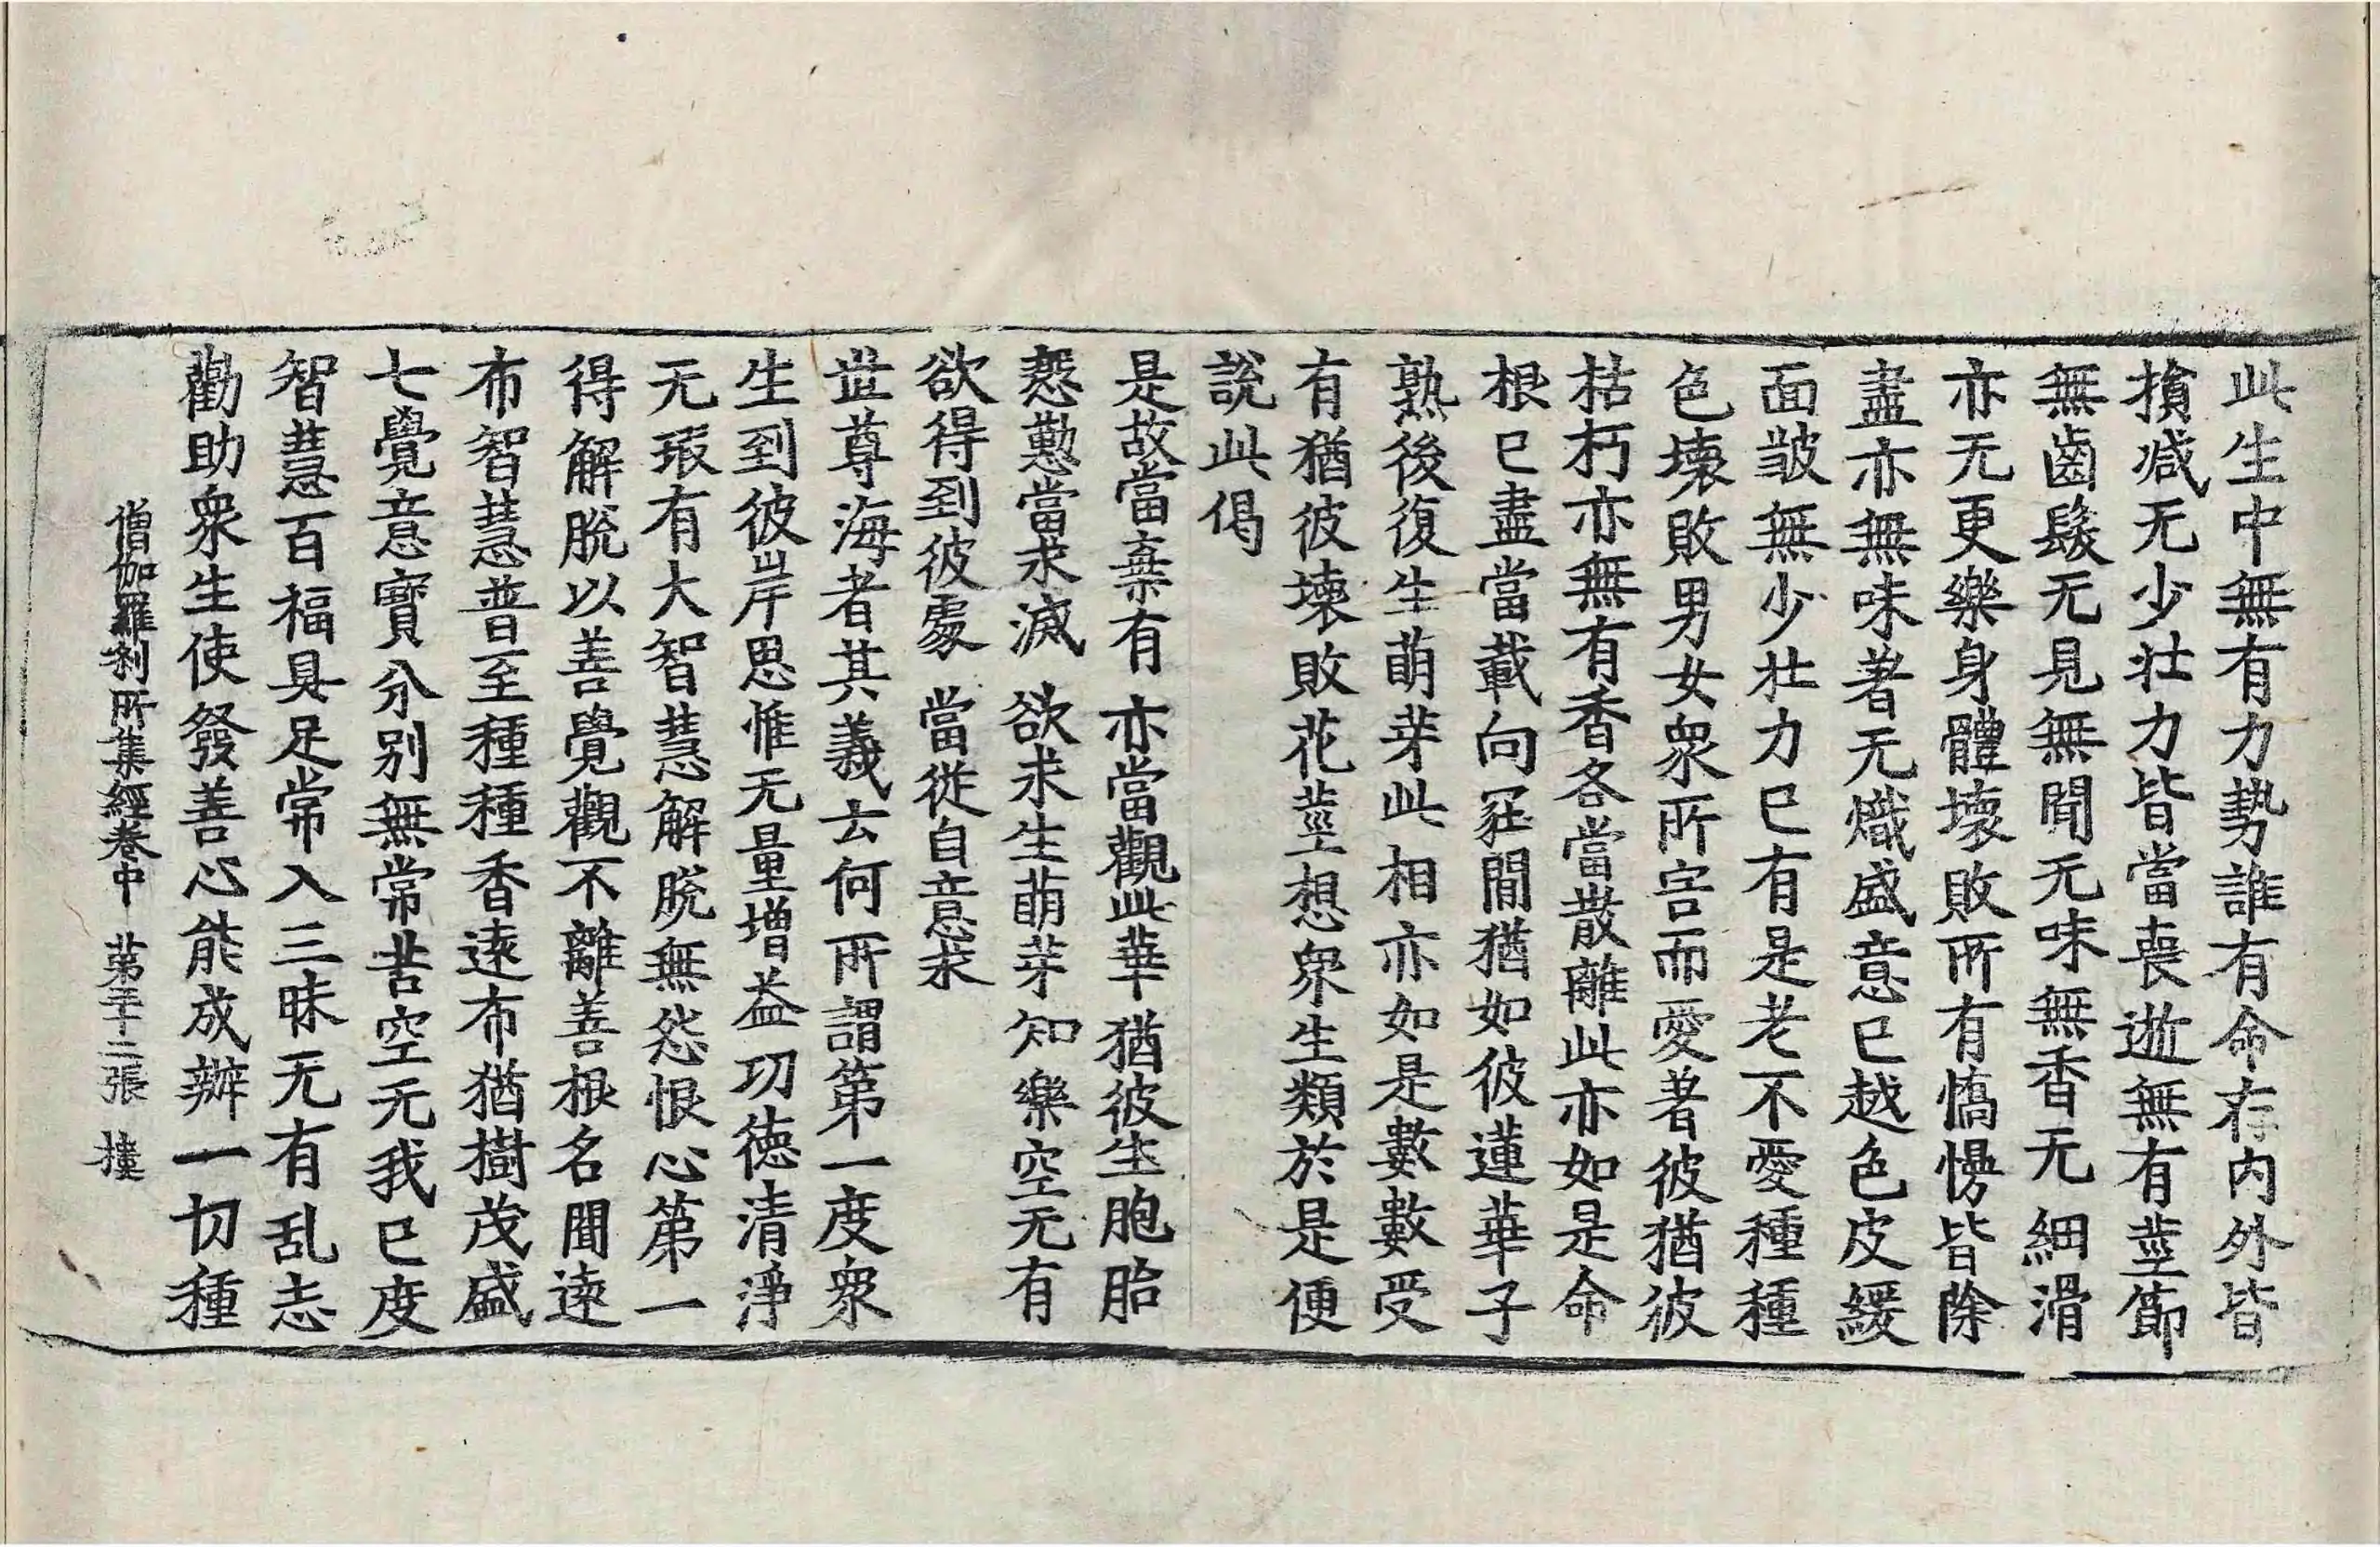 此生中無有力勢誰有命存内外皆
損減无少壯力皆當喪逝無有莖節
無齒髮无見無聞无味無香无細滑
亦无更樂身體壞敗所有憍慢皆除
盡亦無味著无熾盛意已越色皮緩
面皺無少壯力已有是老不愛種種
色壞敗男女衆所害而愛著彼猶彼
枯朽亦無有香各當散離此亦如是命
根已盡當載向冢間猶如彼蓮華子
熟後復生萌芽此相亦如是數數受
有猶彼壞敗花莖想衆生類於是便
說此偈
是故當棄有 亦當觀此華 猶彼生胞胎
慇懃當求滅 欲求生萌芽 知樂空无有
欲得到彼處 當從自意求
世尊海者其義云何所謂第一度衆
生到彼岸思惟无量增益功德清淨
无瑕有大智慧解脫無怨恨心第一
得解脫以善覺觀不離善根名聞遠
布智慧普至種種香遠布猶樹茂盛
七覺意寶分別無常苦空无我已度
智慧百福具足常入三昧无有乱志
勸助衆生使發善心能成辦一切種
僧伽羅刹所集經卷中 第二十二張 樓